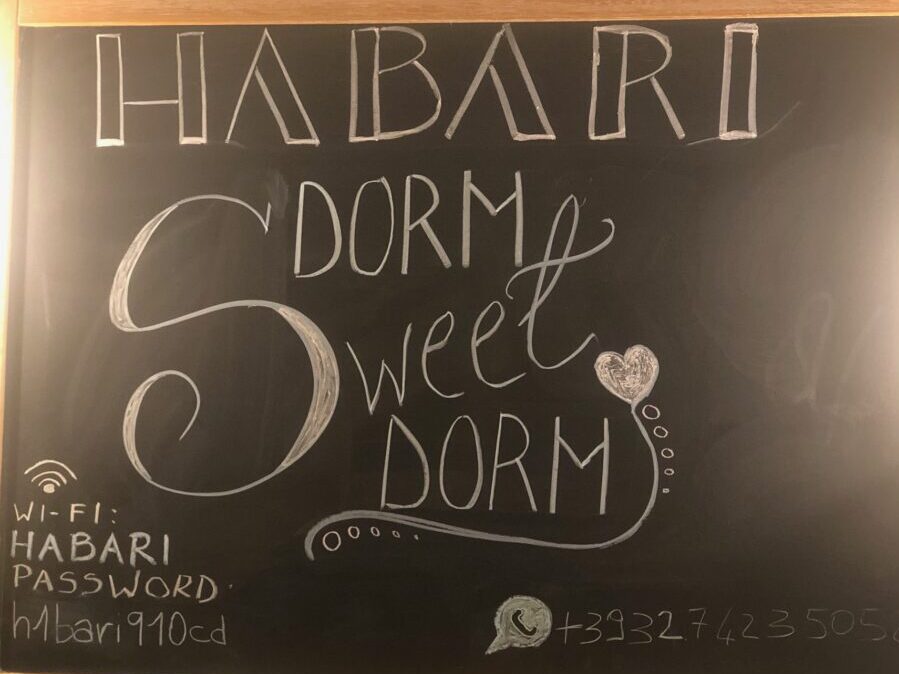 HABARI
DORM
Sweet
DORM
WI-FI:
HABARI
PASSWORD
h1bari910cd